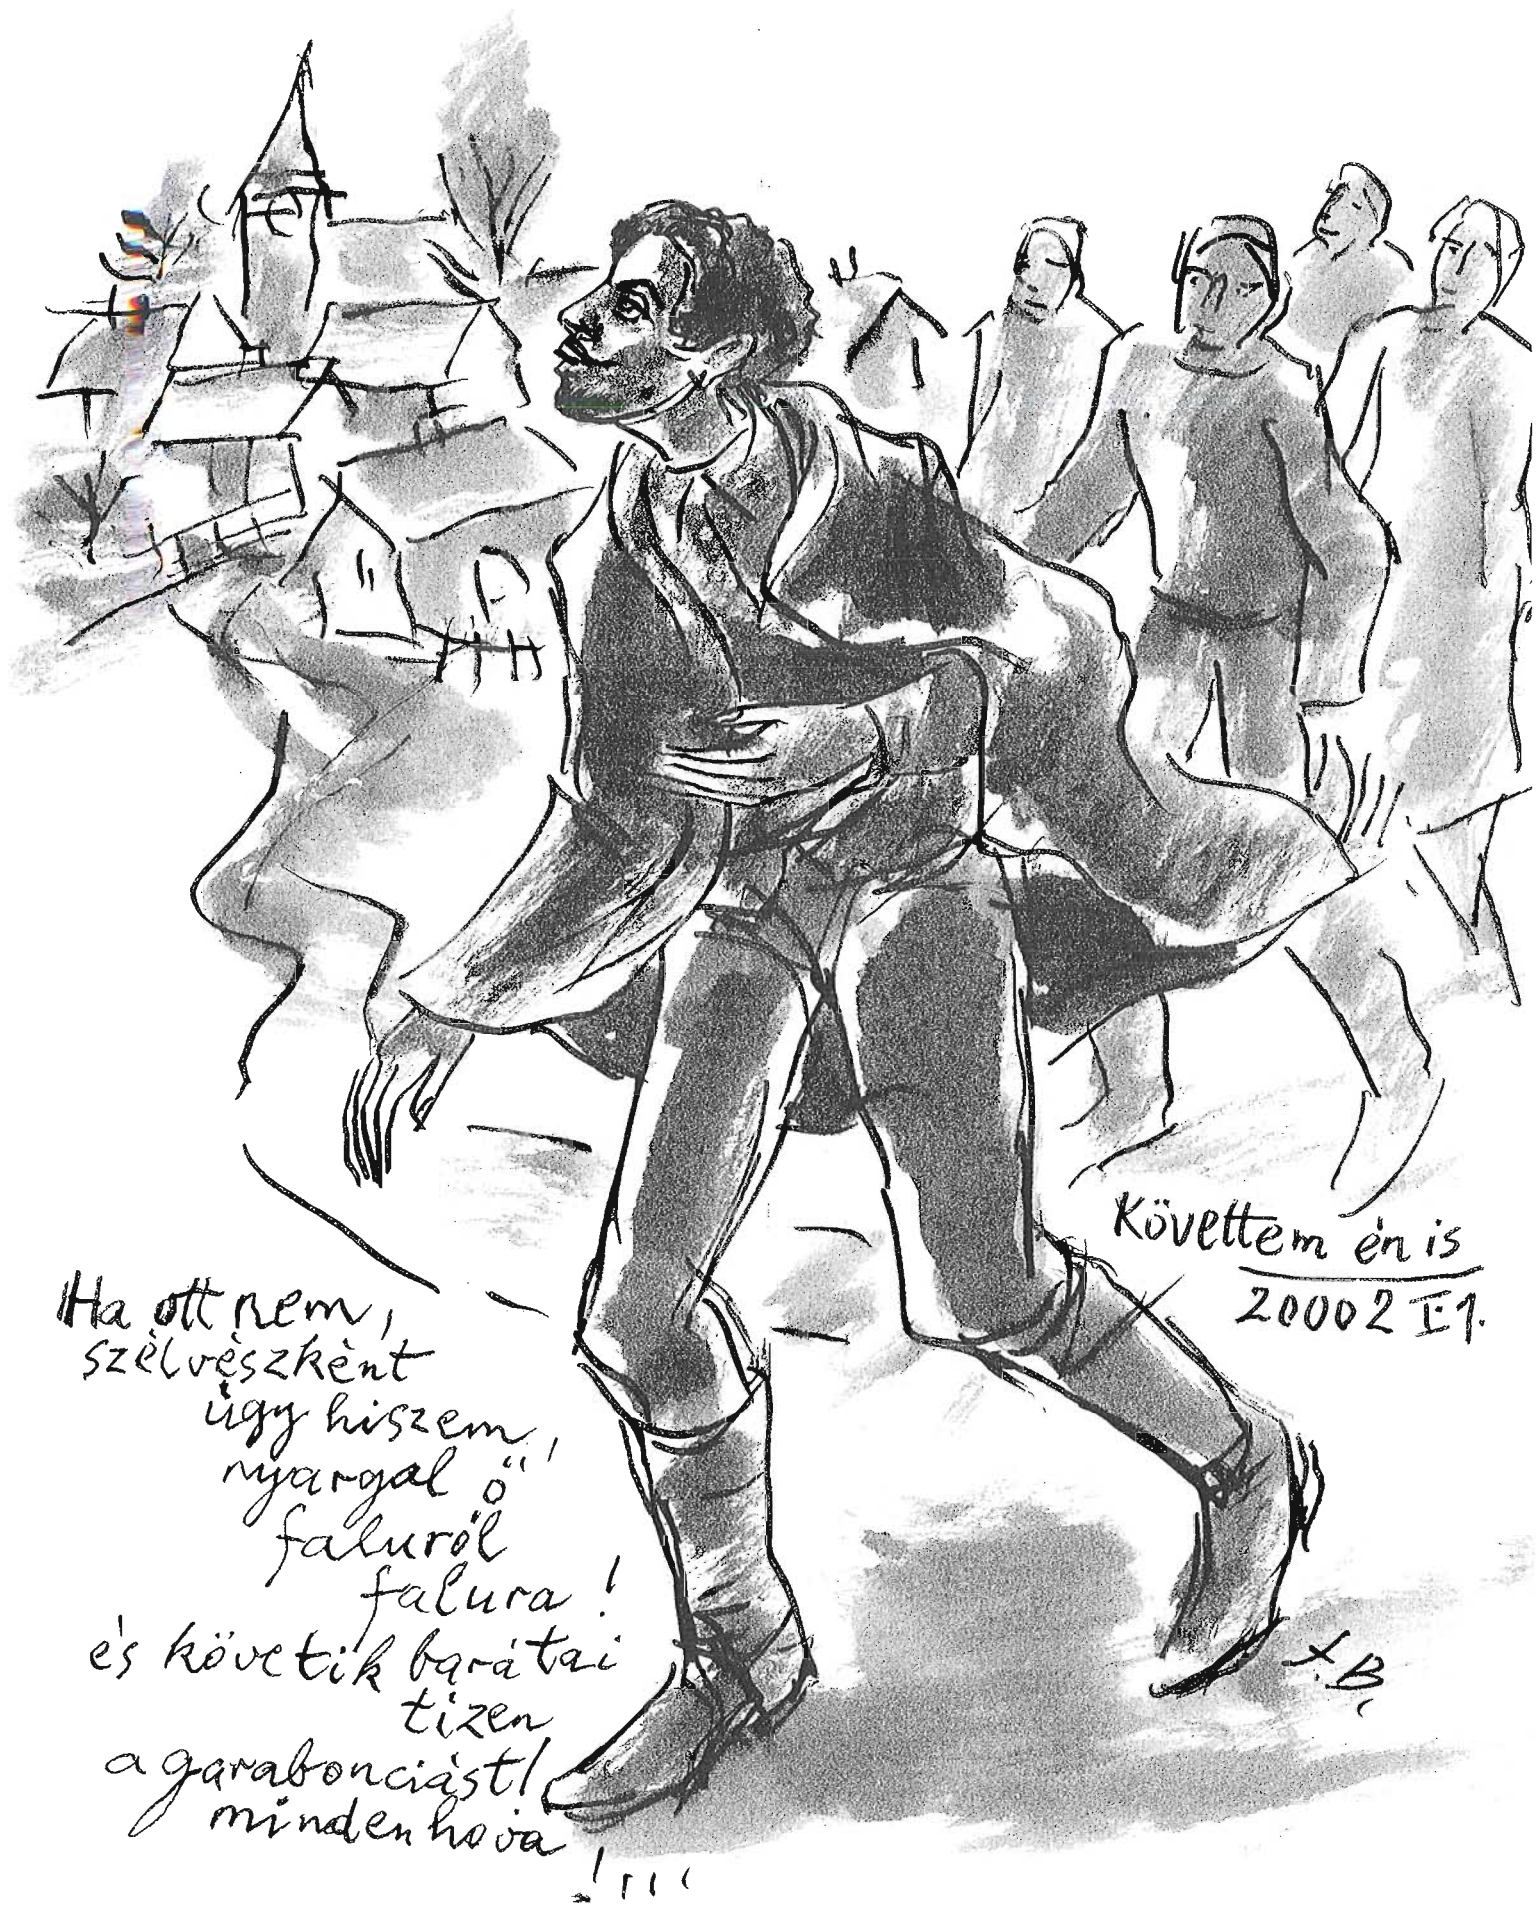 Követtem én is
20002 I.1.
Ha ott nem,
szélvészként
úgy hiszem,
nyargal ő
faluról
falura!
és követik barátai
tizen
a garabonciást!
mindenhová
!...
X.B.